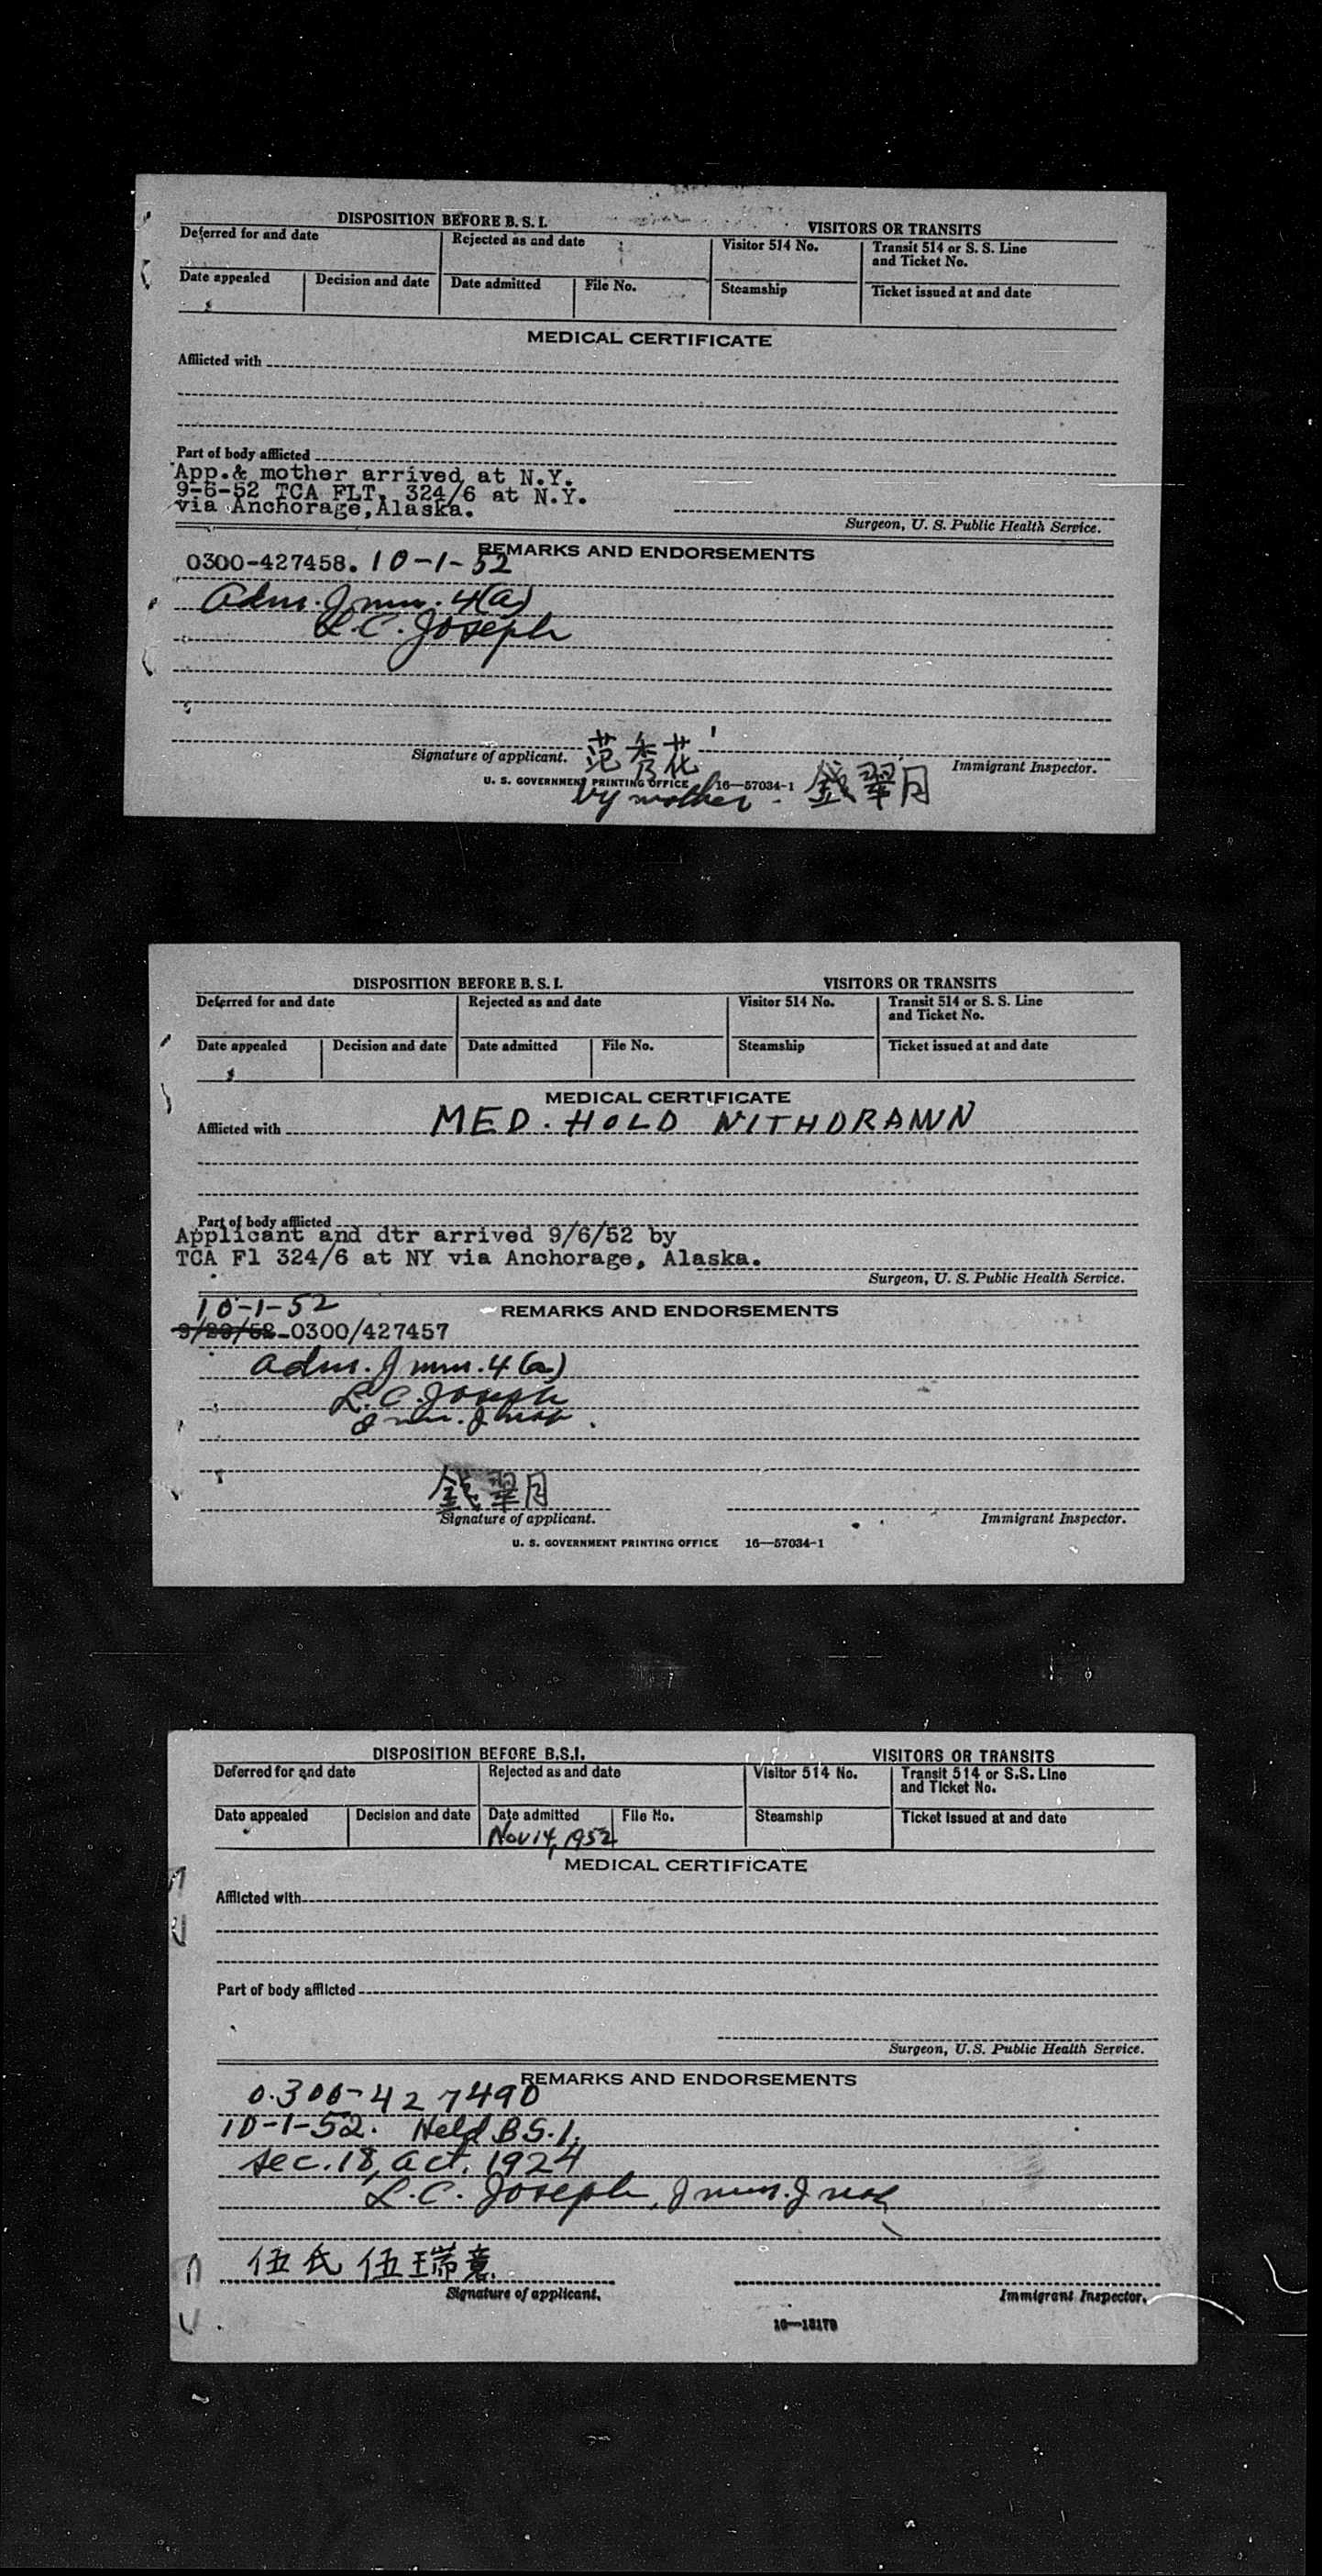 DISPOSITION BEFORE B. S. I. VISITORS OR TRANSITS
Deferred for and date Rejected as and date Visitor 514 No. Transit 514 or S. S. Line and Ticket No.
Date appealed Decision and date Date admitted File No. Steamship Ticket issued at and date
MEDICAL CERTIFICATE
Afflicted with
Part of body afflicted
App.& mother arrived at N.Y.
9-6-52 TCA FLT. 324/6 at N.Y.
via Anchorage,Alaska.
Surgeon, U. S. Public Health Service.
REMARKS AND ENDORSEMENTS
0300-427458. 10-1-52
Adm. Imm. 4(a)
L.C. Joseph
范秀花
Signature of applicant. Immigrant Inspector.
U. S. GOVERNMENT PRINTING OFFICE 16—57034-1
by mother - 錢翠月
DISPOSITION BEFORE B. S. I. VISITORS OR TRANSITS
Deferred for and date Rejected as and date Visitor 514 No. Transit 514 or S. S. Line and Ticket No.
Date appealed Decision and date Date admitted File No. Steamship Ticket issued at and date
MEDICAL CERTIFICATE
Afflicted with MED. HOLD WITHDRAWN
Part of body afflicted
Applicant and dtr arrived 9/6/52 by
TCA Fl 324/6 at NY via Anchorage, Alaska.
Surgeon, U. S. Public Health Service.
10-1-52
REMARKS AND ENDORSEMENTS
9/29/52-0300/427457
Adm. Imm. 4(a)
L.C. Joseph
Imm. Insp.
錢翠月
Signature of applicant. Immigrant Inspector.
U. S. GOVERNMENT PRINTING OFFICE 16—57034-1
DISPOSITION BEFORE B.S.I. VISITORS OR TRANSITS
Deferred for and date Rejected as and date Visitor 514 No. Transit 514 or S.S. Line and Ticket No.
Date appealed Decision and date Date admitted File No. Steamship Ticket issued at and date
Nov 14, 1952
MEDICAL CERTIFICATE
Afflicted with
Part of body afflicted
Surgeon, U.S. Public Health Service.
REMARKS AND ENDORSEMENTS
0300-427490
10-1-52. Held B.S.I.
Sec. 18, Act, 1924
L.C. Joseph, Imm. Insp.
伍氏伍瑞意
Signature of applicant. Immigrant Inspector.
16—13179